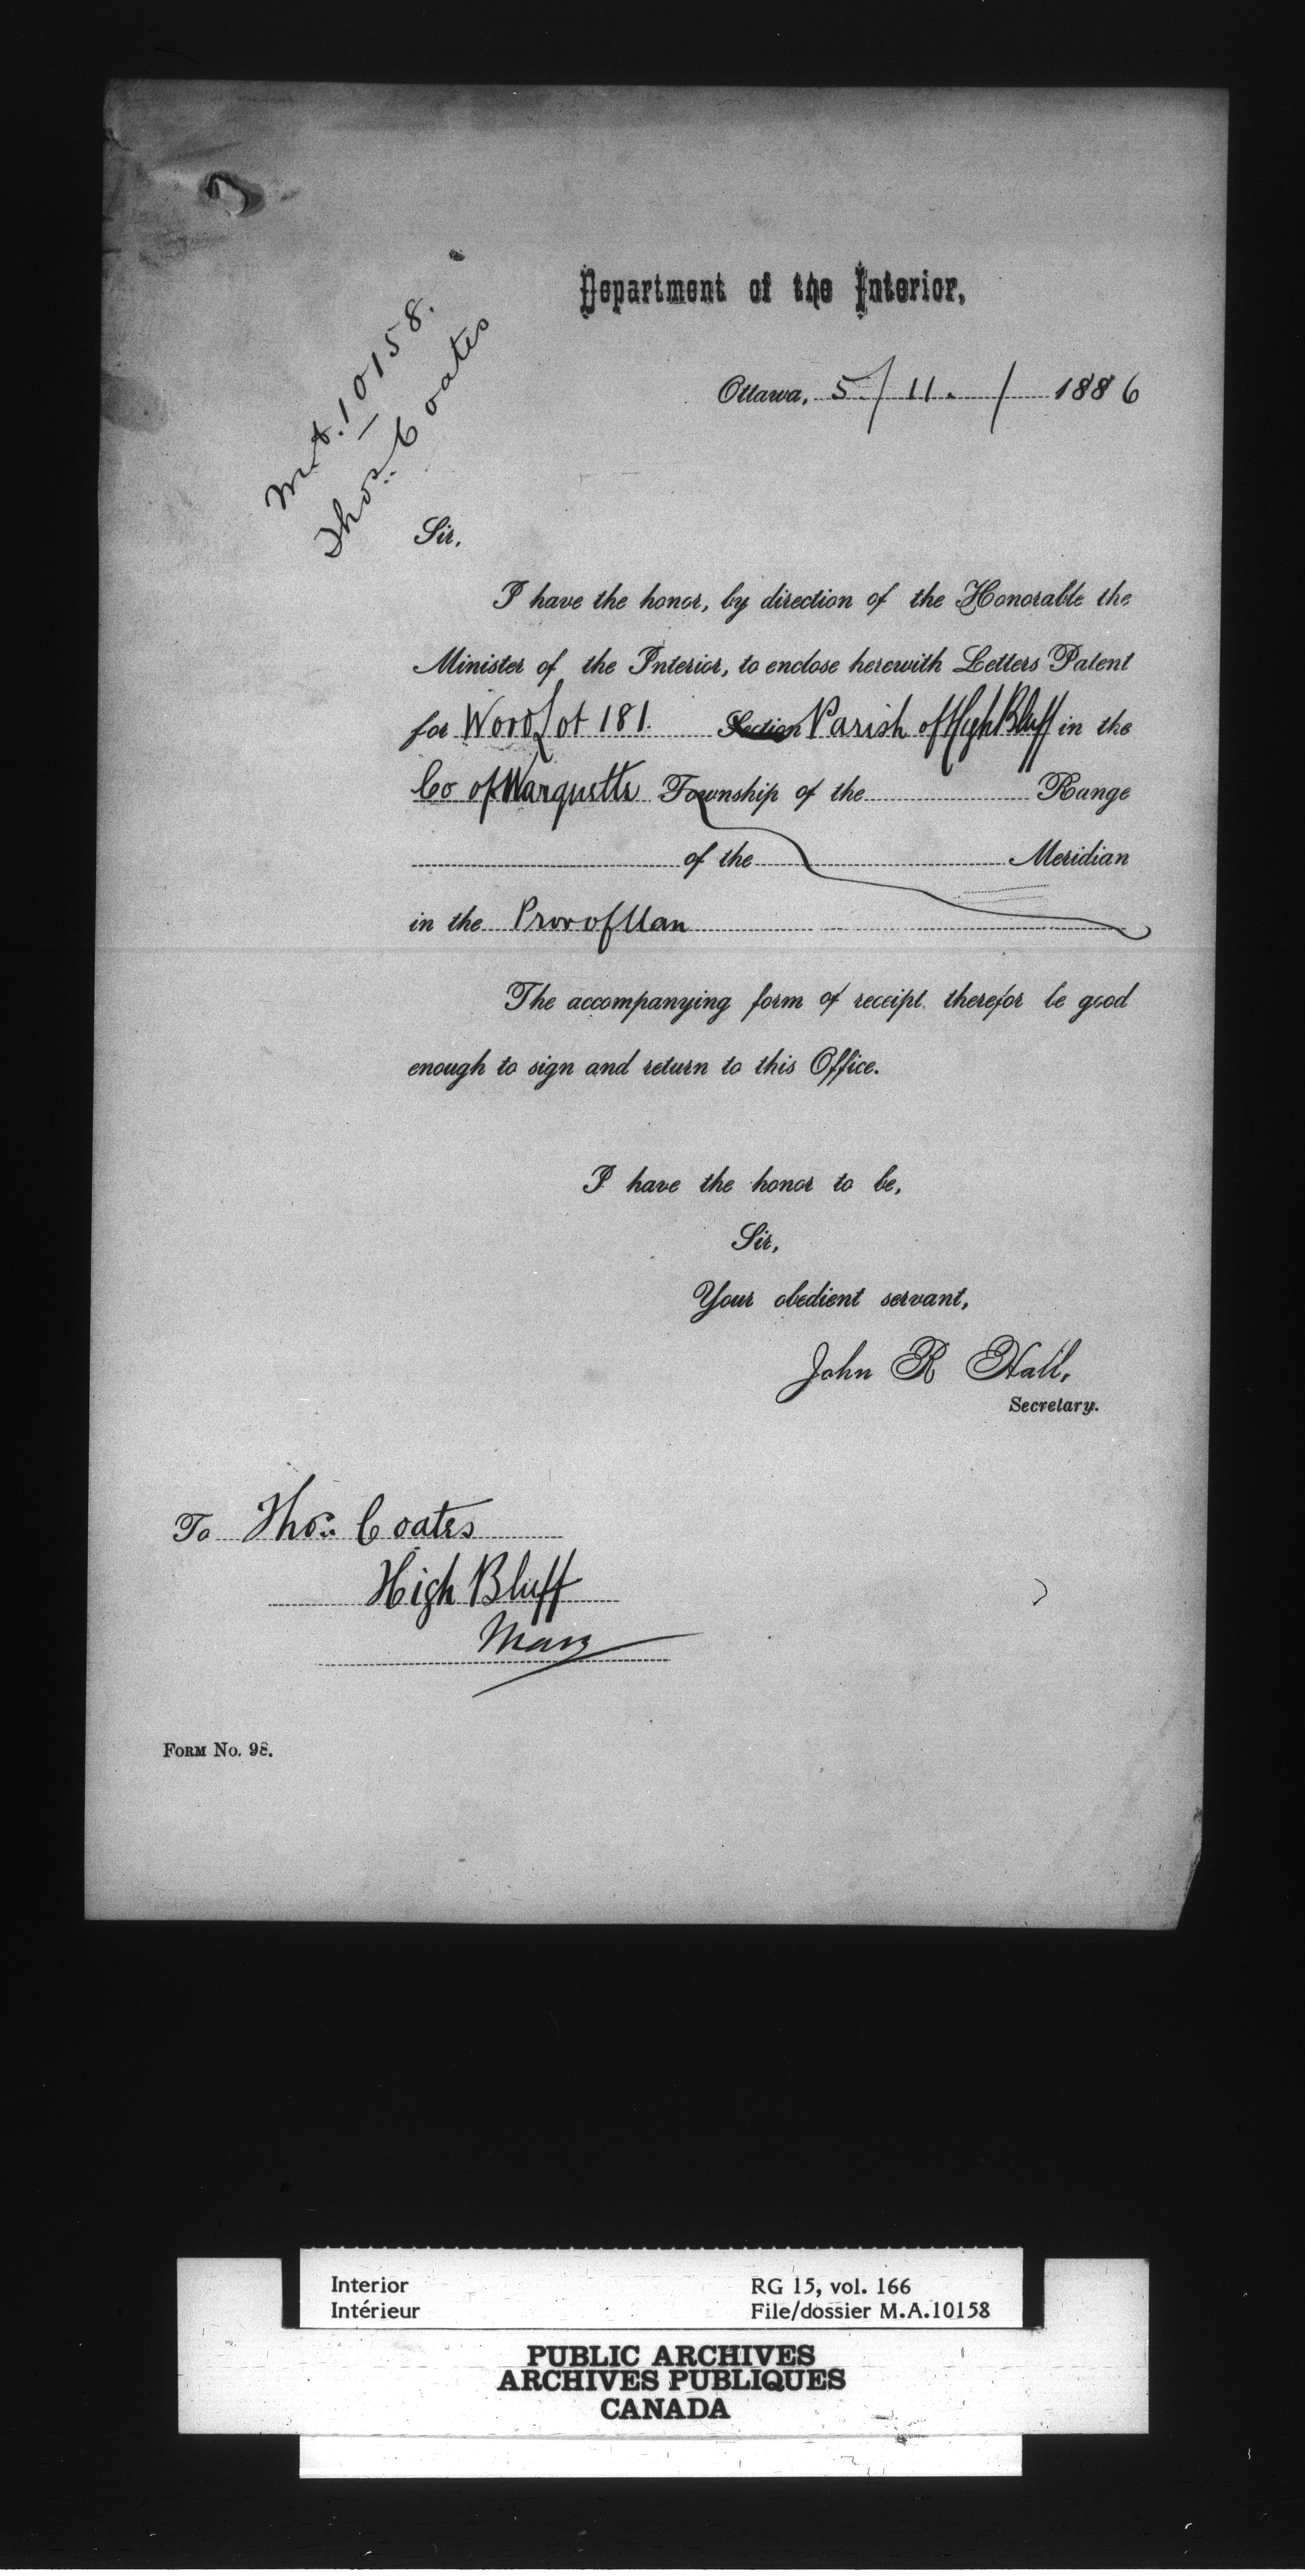 M.A. 10158.
Thos. Coates
Department of the Interior,
Ottawa, 5/11./1886
Sir,
I have the honor, by direction of the Honorable the
Minister of the Interior, to enclose herewith Letters Patent
for Wood Lot 181. Section Parish of High Bluff in the
Co of Marquette Township of the Range
of the Meridian
in the Prov of Man
The accompanying form of receipt therefor be good
enough to sign and return to this Office.
I have the honor to be,
Sir,
Your obedient servant,
John R Hall,
Secretary.
To Thos. Coates
High Bluff
Man
FORM No. 98.
Interior RG 15, vol. 166
Intérieur File/dossier M.A.10158
PUBLIC ARCHIVES
ARCHIVES PUBLIQUES
CANADA